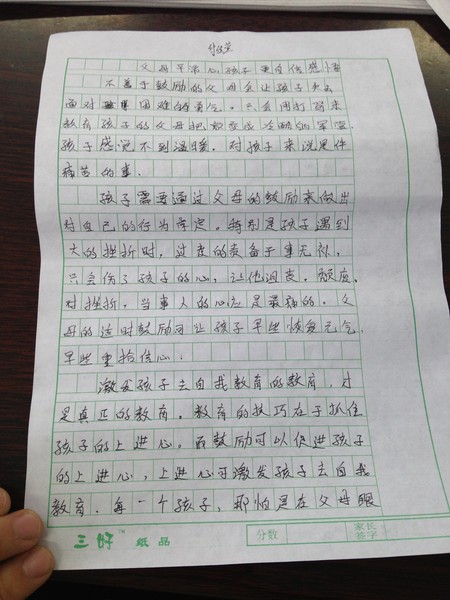 父母平常心孩子更自信感悟
不善于鼓励的父母会让孩子失去
面对困难的勇气。只会用打骂来
教育孩子的父母把家变成冷酷的军营,
孩子感觉不到温暖,对孩子来说是件
痛苦的事。
孩子需要通过父母的鼓励来做出
对自己的行为肯定。特别是孩子遇到
大的挫折时,过度的责备于事无补,
只会伤了孩子的心,让他沮丧,颓废。
对挫折,当事人的心应是最痛的。父
母的适时鼓励可让孩子早些恢复元气,
早些重拾信心。
激发孩子去自我教育的教育,才
是真正的教育。教育的技巧在于抓住
孩子的上进心。而鼓励可以促进孩子
的上进心,上进心可激发孩子去自我
教育。每一个孩子,那怕是在父母眼
三好 纸品
分数
家长签字